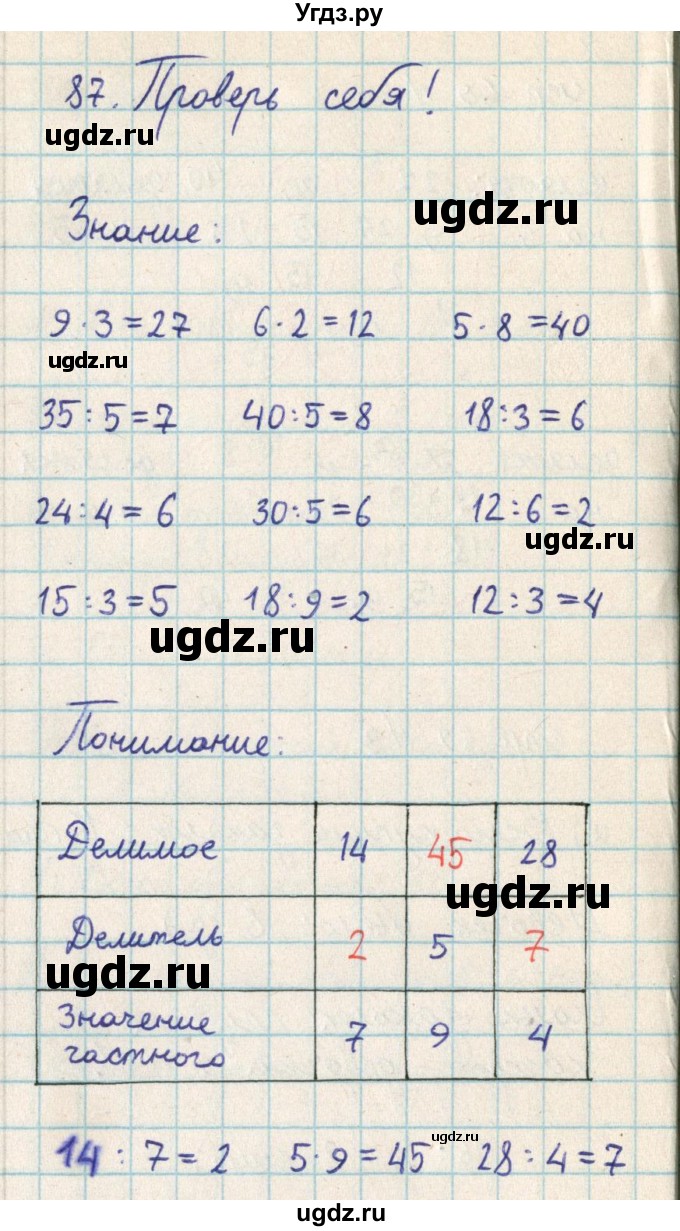 Угдз.ру
87. Проверь себя!
ugdz.ru
ugdz.ru
Знание:
9·3=27 6·2=12 5·8=40
ugdz.ru
35:5=7 40:5=8 18:3=6
24:4=6 30:5=6 12:6=2
ugdz.ru
15:3=5 18:9=2 12:3=4
ugdz.ru
Понимание:
Делимое 14 45 28
ugdz.ru
Делитель 2 5 7
ugdz.ru
Значение частного 7 9 4
ugdz.ru
14:7=2 5·9=45 28:4=7
ugdz.ru